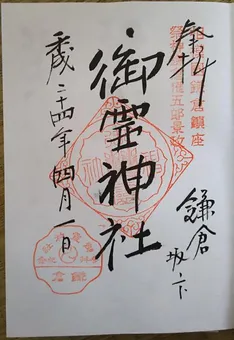 奉拝
鎌倉
坂ノ下
御霊神社
平成二十四年四月一日
鎌倉鎮座
祭神 鎌倉権五郎景政
鎌倉